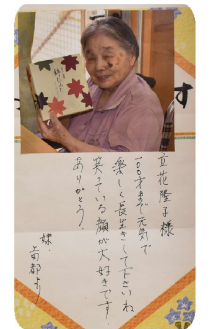 立花隆子様
100才まで元気で
楽しく長生きして下さいね
笑っている顔が大好きです
ありがとう
す